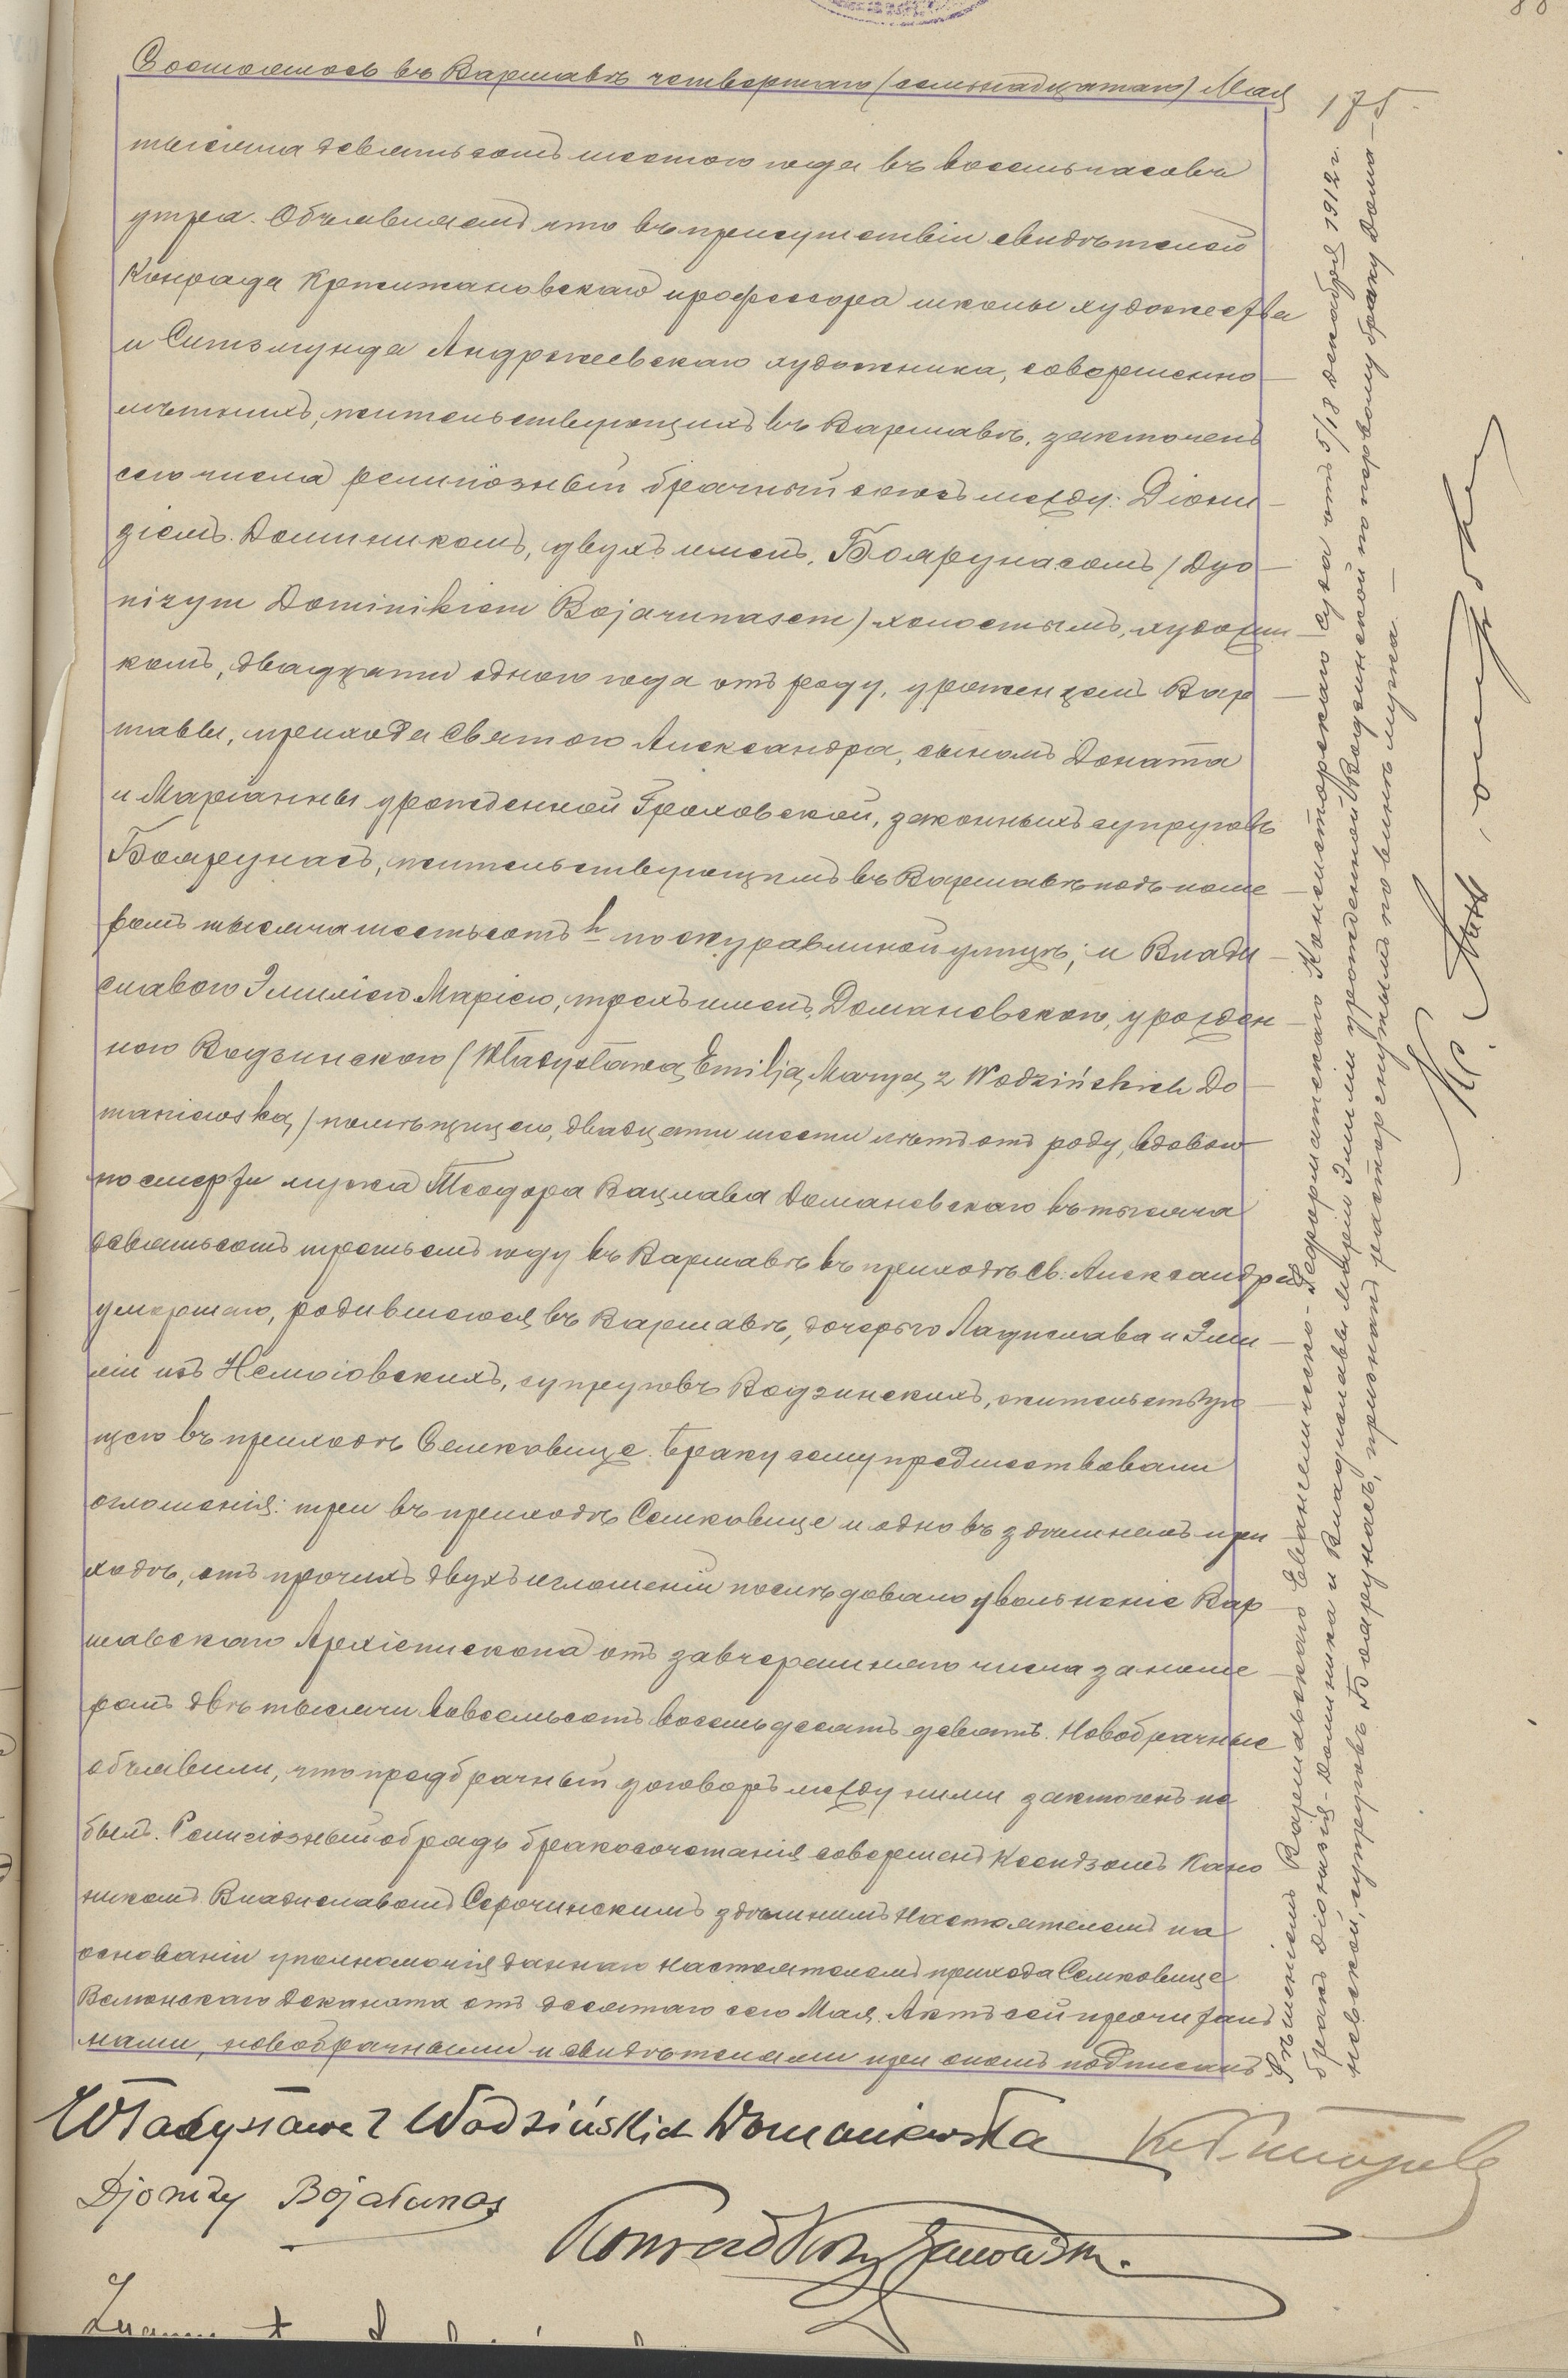 175.
Состоялось въ Варшавѣ четвертаго (семнадцатаго) Мая
тысяча девятьсотъ шестого года въ восемь часовъ
утра. Объявляемъ что въ присутствіи свидѣтелей
Конрада Кржижановскаго профессора школы художества
и Сигизмунда Андржеевскаго художника, совершенно-
лѣтнихъ, жительствующихъ въ Варшавѣ, заключенъ
сего числа религіозный брачный союзъ между: Діони-
зіемъ-Доминикомъ, двухъ именъ, Боярунасомъ (Dyo-
nizym Dominikiem Bojarunasem) холостымъ, художни-
комъ, двадцати одного года отъ роду, уроженцемъ Вар-
шавы, прихода Святого Александра, сыномъ Доната
и Маріанны урожденной Гроховской, законныхъ супруговъ
Боярунасъ, жительствующимъ въ Варшавѣ подъ номе-
ромъ тысяча шестьсотъ h по Журавлиной улицѣ; и Влади-
славою Эмиліею Маріею, трехъ именъ, Доманевскою, урожден-
ною Водзинскою (Władysławą Emilją Maryą z Wodzińskich Do-
maniewską) помѣщицею, двадцати шести лѣтъ отъ роду, вдовою
по смерти мужа Теодора Вацлава Доманевскаго въ тысяча
девятьсотъ третьемъ году въ Варшавѣ въ приходѣ Св. Александра
умершаго, родившеюся въ Варшавѣ, дочерью Ладислава и Эми-
ліи изъ Немоіовскихъ, супруговъ Водзинскихъ, жительствую-
щею въ приходѣ Семковице. Браку сему предшествовали
оглашенія: три въ приходѣ Семковице и одно въ здѣшнемъ при-
ходѣ, отъ прочихъ двухъ оглашеній послѣдовало увольненіе Вар-
шавскаго Архіепископа отъ завчерашняго числа за номе-
ромъ двѣ тысячи восемьсотъ восемьдесятъ девять. Новобрачные
объявили, что предбрачный договоръ между ними заключенъ не
былъ. Религіозный обрядъ бракосочетанія совершенъ Ксендзомъ Кано-
никомъ Владиславомъ Сѣрочинскимъ здѣшнимъ Настоятелемъ на
основаніи уполномочія даннаго Настоятелемъ прихода Семковице
Велюнскаго Деканата отъ десятаго сего Мая. Актъ сей прочитанъ
нами, новобрачными и свидѣтелями при ономъ подписанъ
Władysława z Wodzińskich Domaniewska
Djonizy Bojarunas
Konrad Krzyżanowski.
Рѣшеніемъ Варшавскаго Евангелическо-Реформатскаго Консисторскаго суда отъ 5/18 декабря 1912 г.
бракъ Діонизія-Доминика и Владиславы Маріи Эмиліи урожденной Водзинской по первому браку Дома-
невской, супруговъ Боярунасъ, признанъ расторгнутымъ по винѣ мужа. —